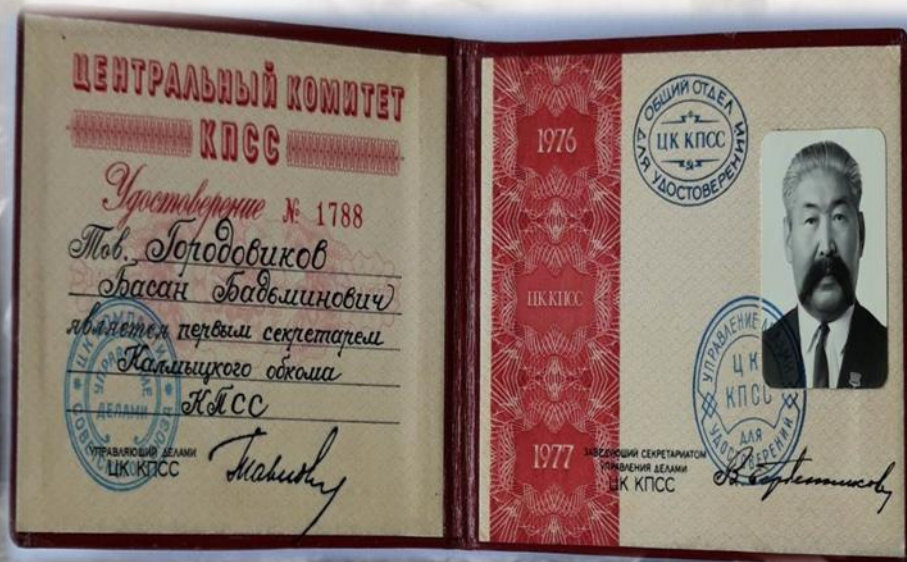 ЦЕНТРАЛЬНЫЙ КОМИТЕТ
КПСС
Удостоверение № 1788
Тов. Городовиков
Басан Бадьминович
является первым секретарем
Калмыцкого обкома
КПСС
УПРАВЛЯЮЩИЙ ДЕЛАМИ
ЦК КПСС
УПРАВЛЕНИЕ
ДЕЛАМИ
1976
ЦК КПСС
1977
ОБЩИЙ ОТДЕЛ
ЦК КПСС
ДЛЯ УДОСТОВЕРЕНИЙ
УПРАВЛЕНИЕ
ЦК
КПСС
ДЛЯ
УДОСТОВЕРЕНИЙ
ЗАВЕДУЮЩИЙ СЕКРЕТАРИАТОМ
УПРАВЛЕНИЯ ДЕЛАМИ
ЦК КПСС